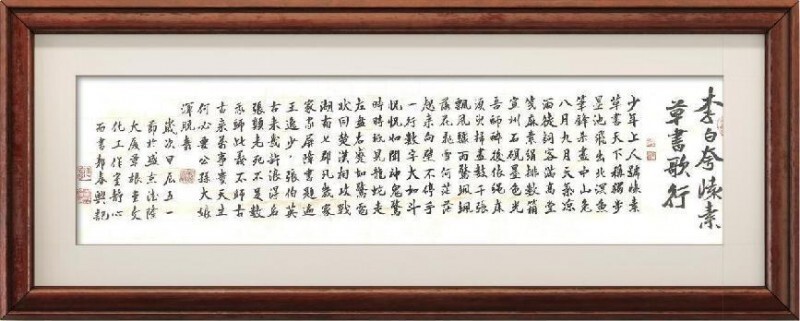 李白夸懷素
草書歌行
少年上人號懷素
草書天下稱獨步
墨池飛出北溟魚
筆鋒殺盡中山兔
八月九月天氣凉
酒徒詞客滿高堂
箋麻素絹排數箱
宣州石硯墨色光
吾師醉後倚繩床
須臾掃盡數千張
飄風驟雨驚颯颯
落花飛雪何茫茫
起來向壁不停手
一行數字大如斗
怳怳如聞神鬼驚
時時只見龍蛇走
左盤右蹙如驚電
狀同楚漢相攻戰
湖南七郡凡幾家
家家屏障書題遍
王逸少張伯英
古來幾許浪得名
張顛老死不足數
我師此義不師古
古來萬事貴天生
何必要公孫大娘
渾脫舞
歲次甲辰五一
節於盛京德隆
大廈草根書文
化工作室静心
而書郭春興記